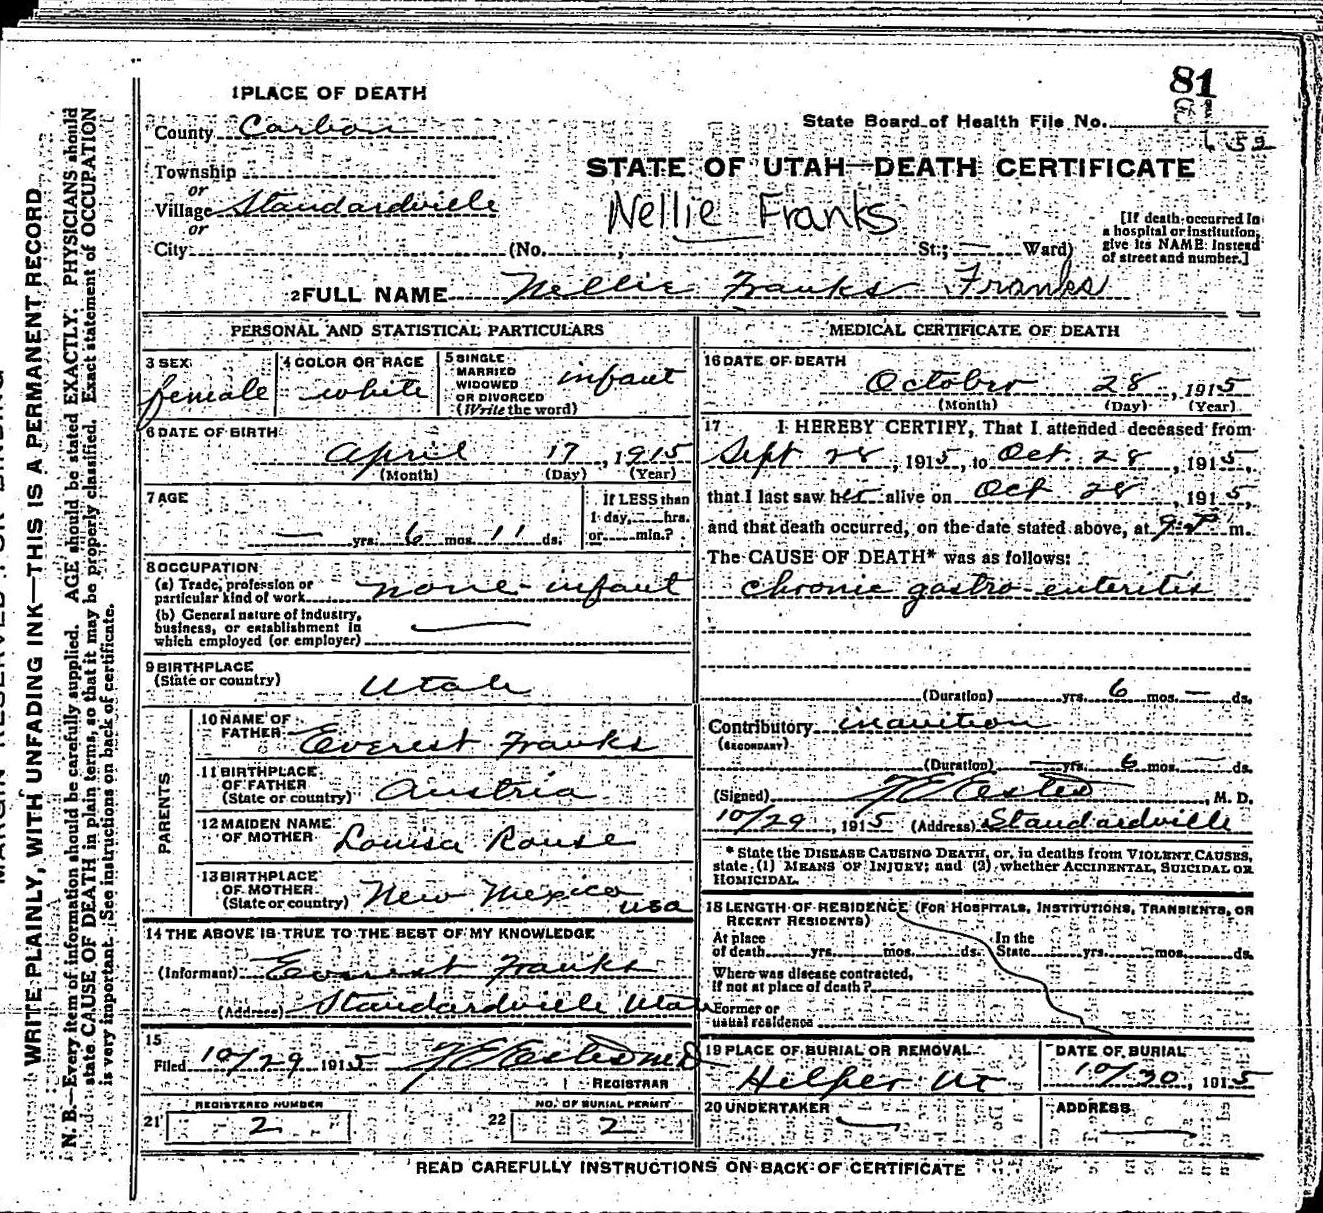 81
81
1 PLACE OF DEATH
County Carbon
State Board of Health File No.
Township
or
Village Standardville
or
City (No. , St.; Ward)
STATE OF UTAH—DEATH CERTIFICATE
Nellie Franks
[If death occurred in
a hospital or institution,
give its NAME instead
of street and number.]
2 FULL NAME Nellie Franks Franks
PERSONAL AND STATISTICAL PARTICULARS
3 SEX
female
4 COLOR OR RACE
white
5 SINGLE
MARRIED
WIDOWED
OR DIVORCED
(Write the word)
infant
6 DATE OF BIRTH
April 17, 1915
(Month) (Day) (Year)
7 AGE
— yrs. 6 mos. 11 ds.
If LESS than
1 day, hrs.
or min.?
8 OCCUPATION
(a) Trade, profession or
particular kind of work none-infant
(b) General nature of industry,
business, or establishment in
which employed (or employer) —
9 BIRTHPLACE
(State or country) Utah
PARENTS
10 NAME OF
FATHER Everest Franks
11 BIRTHPLACE
OF FATHER
(State or country) Austria
12 MAIDEN NAME
OF MOTHER Louisa Rouse
13 BIRTHPLACE
OF MOTHER
(State or country) New Mexico
USA
14 THE ABOVE IS TRUE TO THE BEST OF MY KNOWLEDGE
(Informant) Everest Franks
(Address) Standardville Utah
15
Filed 10/29 1915 F E Estes MD
REGISTRAR
REGISTERED NUMBER
21 2
NO. OF BURIAL PERMIT
22 2
MEDICAL CERTIFICATE OF DEATH
16 DATE OF DEATH
October 28, 1915
(Month) (Day) (Year)
17 I HEREBY CERTIFY, That I attended deceased from
Sept 28, 1915, to Oct. 28, 1915,
that I last saw her alive on Oct 28, 1915,
and that death occurred, on the date stated above, at 9 P m.
The CAUSE OF DEATH* was as follows:
chronic gastro-enteritis
(Duration) yrs. 6 mos. — ds.
Contributory inanition
(SECONDARY)
(Duration) — yrs. 6 mos. — ds.
(Signed) F E Estes, M. D.
10/29, 1915 (Address) Standardville
* State the DISEASE CAUSING DEATH, or, in deaths from VIOLENT CAUSES,
state (1) MEANS OF INJURY; and (2) whether ACCIDENTAL, SUICIDAL OR
HOMICIDAL.
18 LENGTH OF RESIDENCE (FOR HOSPITALS, INSTITUTIONS, TRANSIENTS, OR
RECENT RESIDENTS)
At place
of death yrs. mos. ds.
In the
State yrs. mos. ds.
Where was disease contracted,
if not at place of death?
Former or
usual residence
19 PLACE OF BURIAL OR REMOVAL
Helper Ut
DATE OF BURIAL
10/30, 1915
20 UNDERTAKER
—
ADDRESS
—
READ CAREFULLY INSTRUCTIONS ON BACK OF CERTIFICATE
WRITE PLAINLY, WITH UNFADING INK—THIS IS A PERMANENT RECORD
N. B.—Every item of information should be carefully supplied. AGE should be stated EXACTLY. PHYSICIANS should
state CAUSE OF DEATH in plain terms, so that it may be properly classified. Exact statement of OCCUPATION
is very important. See instructions on back of certificate.